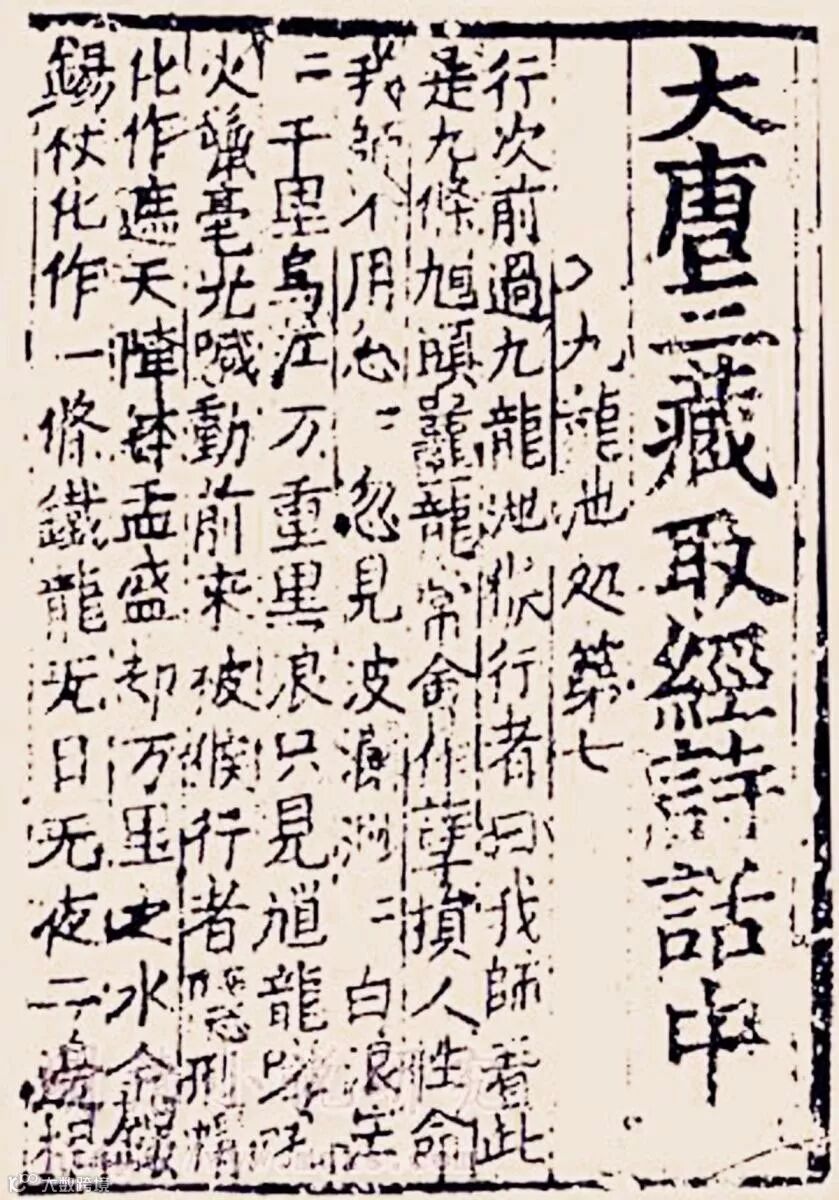 大唐三藏取經詩話中
入九龍池処第七
行次前過九龍池猴行者曰我師看此
是九條馗頭鼉龍常會作孽損人性命
我師不用忩〻忽見波瀾渺〻白浪茫
〻千里烏江万重黑浪只見馗龍哮吼
火鬣毫光喊動前來被猴行者隱形帽
化作遮天陣鉢盂盛却万里之水金鐶
錫杖化作一條鐵龍无日无夜二邊相
大数跨境